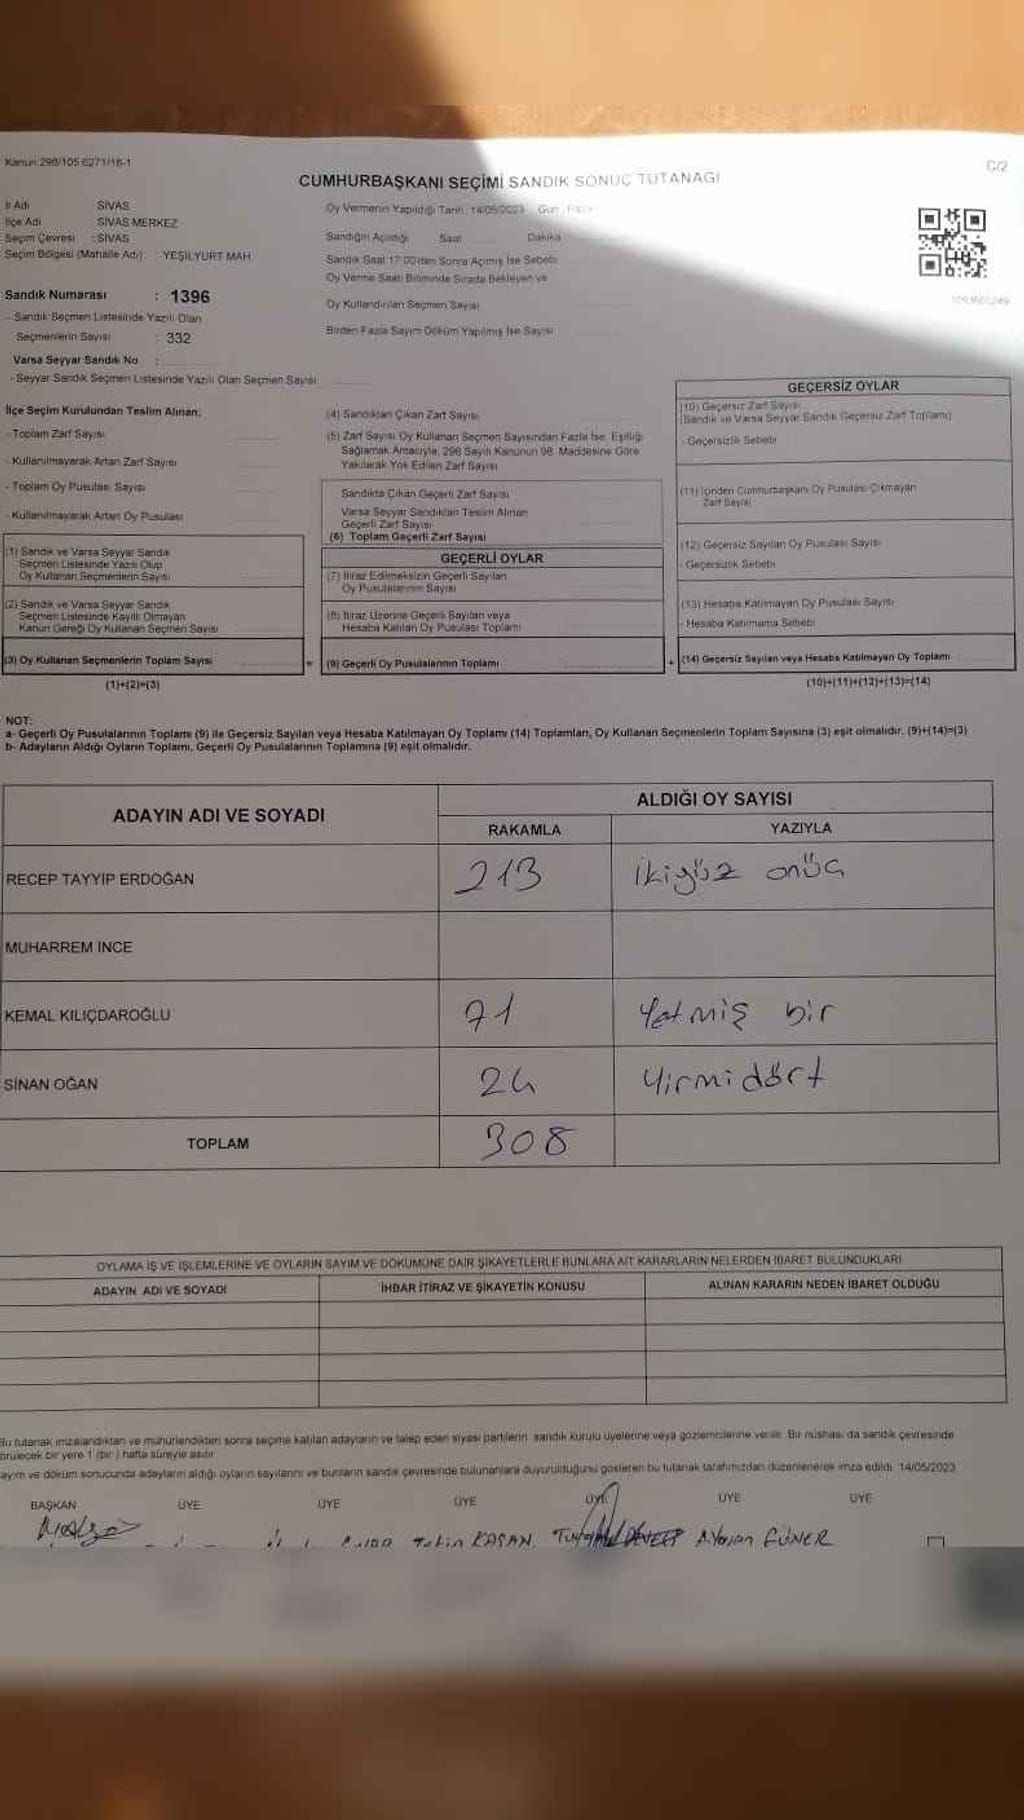 Kanun:298/105 6271/18-1
C/2
CUMHURBAŞKANI SEÇİMİ SANDIK SONUÇ TUTANAĞI
İl Adı SİVAS
İlçe Adı SİVAS MERKEZ
Seçim Çevresi : SİVAS
Seçim Bölgesi (Mahalle Adı) : YEŞİLYURT MAH.
Oy Vermenin Yapıldığı Tarih: 14/05/2023 Gün:
Sandığın Açıldığı Saat Dakika
Sandık Saat 17:00'den Sonra Açılmış İse Sebebi
Oy Verme Saati Bitiminde Sırada Bekleyen ve
Oy Kullandırılan Seçmen Sayısı
Birden Fazla Sayım Döküm Yapılmış İse Sayısı
Sandık Numarası : 1396
- Sandık Seçmen Listesinde Yazılı Olan
Seçmenlerin Sayısı : 332
Varsa Seyyar Sandık No :
- Seyyar Sandık Seçmen Listesinde Yazılı Olan Seçmen Sayısı
İlçe Seçim Kurulundan Teslim Alınan;
- Toplam Zarf Sayısı
- Kullanılmayarak Artan Zarf Sayısı
- Toplam Oy Pusulası Sayısı
- Kullanılmayarak Artan Oy Pusulası
(1) Sandık ve Varsa Seyyar Sandık
Seçmen Listesinde Yazılı Olup
Oy Kullanan Seçmenlerin Sayısı
(2) Sandık ve Varsa Seyyar Sandık
Seçmen Listesinde Kayıtlı Olmayan
Kanun Gereği Oy Kullanan Seçmen Sayısı
(3) Oy Kullanan Seçmenlerin Toplam Sayısı
(1)+(2)=(3)
(4) Sandıktan Çıkan Zarf Sayısı
(5) Zarf Sayısı Oy Kullanan Seçmen Sayısından Fazla İse, Eşitliği
Sağlamak Amacıyla, 298 Sayılı Kanunun 98. Maddesine Göre
Yakılarak Yok Edilen Zarf Sayısı
Sandıkta Çıkan Geçerli Zarf Sayısı
Varsa Seyyar Sandıktan Teslim Alınan
Geçerli Zarf Sayısı
(6) Toplam Geçerli Zarf Sayısı
GEÇERLİ OYLAR
(7) İtiraz Edilmeksizin Geçerli Sayılan
Oy Pusulalarının Sayısı
(8) İtiraz Üzerine Geçerli Sayılan veya
Hesaba Katılan Oy Pusulası Toplamı
= (9) Geçerli Oy Pusulalarının Toplamı
GEÇERSİZ OYLAR
(10) Geçersiz Zarf Sayısı
(Sandık ve Varsa Seyyar Sandık Geçersiz Zarf Toplamı)
- Geçersizlik Sebebi
(11) İçinden Cumhurbaşkanı Oy Pusulası Çıkmayan
Zarf Sayısı
(12) Geçersiz Sayılan Oy Pusulası Sayısı
- Geçersizlik Sebebi
(13) Hesaba Katılmayan Oy Pusulası Sayısı
- Hesaba Katılmama Sebebi
+ (14) Geçersiz Sayılan veya Hesaba Katılmayan Oy Toplamı
(10)+(11)+(12)+(13)=(14)
NOT:
a- Geçerli Oy Pusulalarının Toplamı (9) ile Geçersiz Sayılan veya Hesaba Katılmayan Oy Toplamı (14) Toplamları, Oy Kullanan Seçmenlerin Toplam Sayısına (3) eşit olmalıdır. (9)+(14)=(3)
b- Adayların Aldığı Oyların Toplamı, Geçerli Oy Pusulalarının Toplamına (9) eşit olmalıdır.
ADAYIN ADI VE SOYADI ALDIĞI OY SAYISI
RAKAMLA YAZIYLA
RECEP TAYYİP ERDOĞAN 213 ikiyüz onüç
MUHARREM İNCE
KEMAL KILIÇDAROĞLU 71 Yetmiş bir
SİNAN OĞAN 24 Yirmidört
TOPLAM 308
OYLAMA İŞ VE İŞLEMLERİNE VE OYLARIN SAYIM VE DÖKÜMÜNE DAİR ŞİKAYETLERLE BUNLARA AİT KARARLARIN NELERDEN İBARET BULUNDUKLARI
ADAYIN ADI VE SOYADI İHBAR İTİRAZ VE ŞİKAYETİN KONUSU ALINAN KARARIN NEDEN İBARET OLDUĞU
Bu tutanak imzalandıktan ve mühürlendikten sonra seçime katılan adayların ve talep eden siyasi partilerin sandık kurulu üyelerine veya gözlemcilerine verilir. Bir nüshası da sandık çevresinde
görülecek bir yere 1 (bir) hafta süreyle asılır.
Sayım ve döküm sonucunda adayların aldığı oyların sayılarını ve bunların sandık çevresinde bulunanlara duyurulduğunu gösteren bu tutanak tarafımızdan düzenlenerek imza edildi. 14/05/2023
BAŞKAN ÜYE ÜYE ÜYE ÜYE ÜYE ÜYE
KAŞAN GÜNER